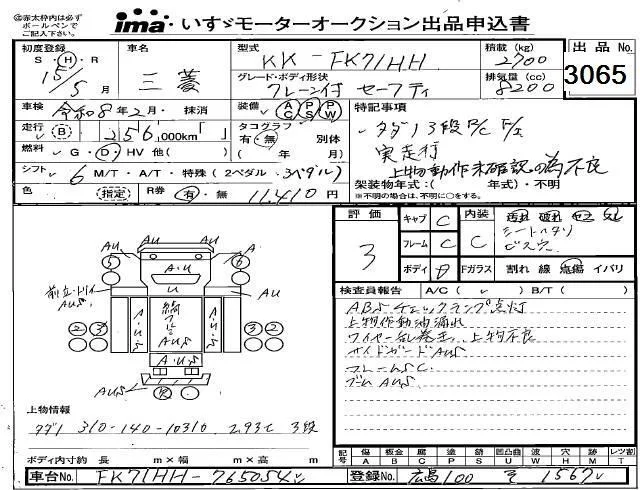 ◎赤太枠内は必ず
ボールペンで
ご記入下さい。
ima・いすゞモーターオークション出品申込書
初度登録
S・H・R
15/5 月
車名
三菱
型式
KK-FK71HH
積載 (kg)
2700
出品No.
3065
グレード・ボディ形状
クレーン付 セーフティ
排気量 (cc)
8200
車検 令和8年2月・抹消
装備 AC PS PW
特記事項
走行 B 256,000km「 」
タコグラフ 別体
有・無( 年 月)
燃料 G・D・HV 他( )
タダノ3段R/C F/I
実走行
上物動作未確認の為不良
シフト 6 M/T・A/T・特殊 (2ペダル・3ペダル)
色 (指定) R券 有・無 11,410円
架装物年式:( 年式)・不明
※不明の場合は、不明に○をする。
評価
3
キャブ C
フレーム C
ボディ
内装 C
シートヘタリ
ビス穴
Fガラス 割れ 線 飛傷 イバリ
検査員報告 A/C( レ ) B/T( )
ABSチェックランプ点灯
上物作動油漏れ
ワイヤー乱巻き、上物不良
サイドガードAUS
フレームSC
ブームAUS
AU
AU
A
5
6
A・U
U
AUS
A・U・S
A・U・S
2 3
3 2
A・U・S
AUS
上物情報
タダノ 310-140-10310 2.93t 3段
ボディ内寸約 長 m×幅 m×高 m
記号 傷 A 板金 B 腐 C 塗 P 錆 S 凹凸曲 U 波 W 穴 H 跡 M レツ割 T
車台No. FK71HH-765054
登録No. 広島100 そ 1567